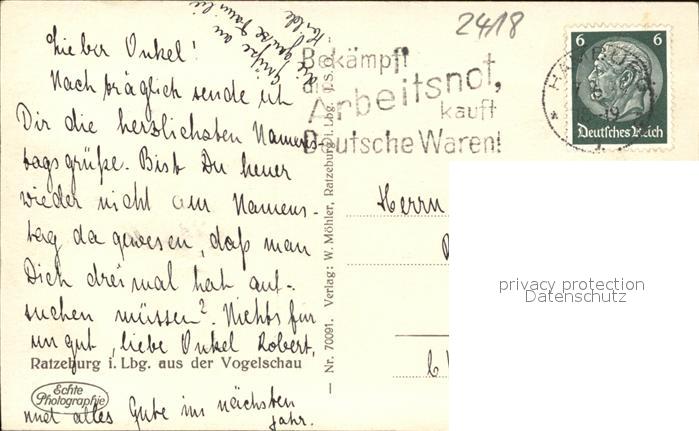 2418
Grüße an
die ganze Familie
Lieber Onkel!
Nach träglich sende ich
Dir die herzlichsten Namens-
tagsgrüße. Bist Du heuer
wieder nicht am Namens-
tag da gewesen, daß man
Dich dreimal hat auf-
suchen müssen? Nichts für
ungut, liebe Onkel Robert,
Ratzeburg i. Lbg. aus der Vogelschau
Echte
Photographie
und alles Gute im nächsten
Jahr.
Bekämpft
die
Arbeitsnot,
kauft
Deutsche Waren!
6 6
Deutsches Reich
Herrn
— Nr. 70091. Verlag: W. Möhler, Ratzeburg i. Lbg.
privacy protection
Datenschutz